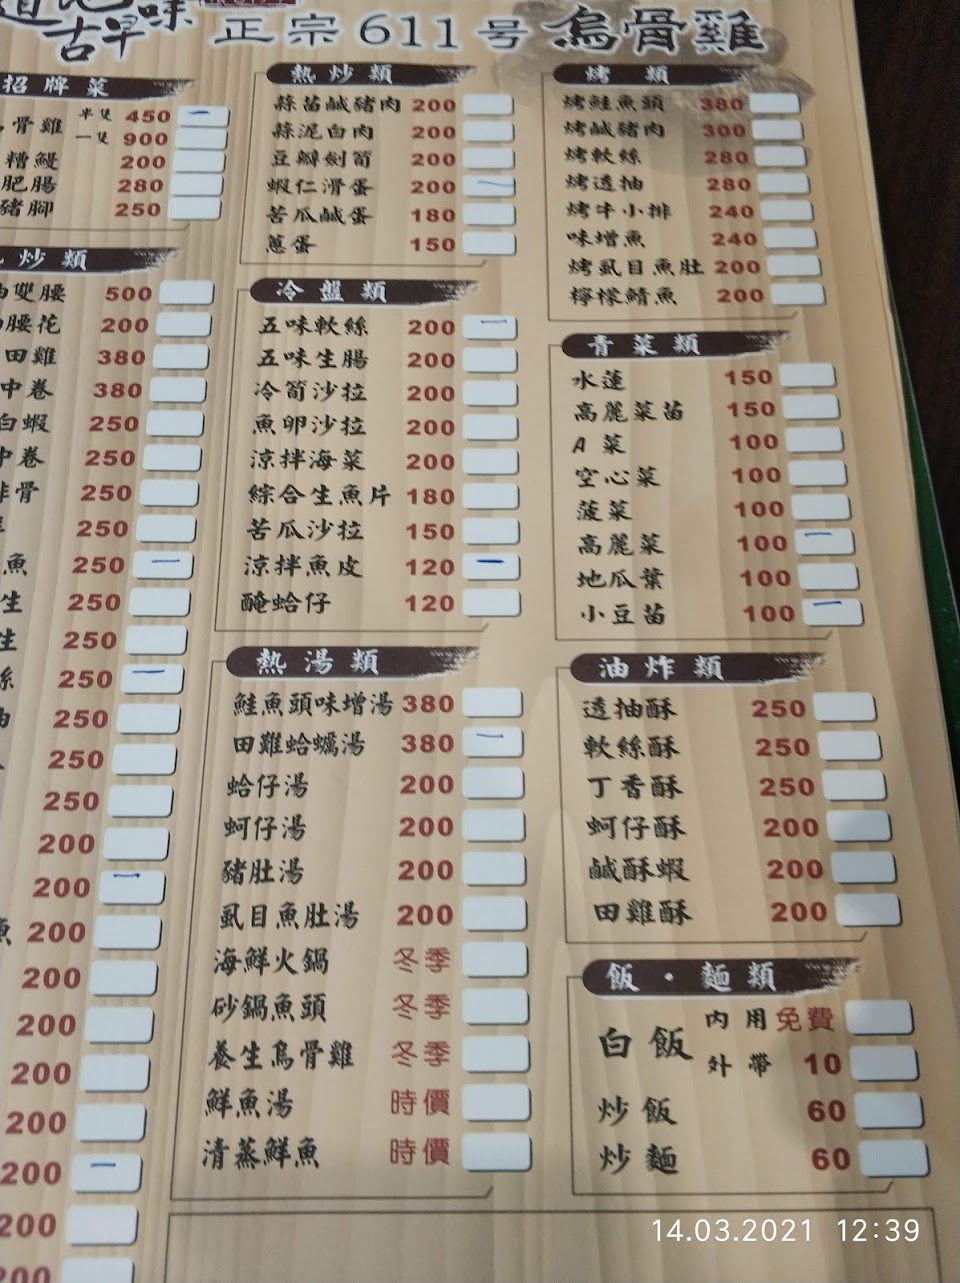 道地古早味
正宗611号 烏骨雞
招牌菜
骨雞 半隻 450 一
一隻 900
糟鰻 200
肥腸 280
豬腳 250
炒類
雙腰 500
腰花 200
田雞 380
中卷 380
白蝦 250
中卷 250
排骨 250
250
魚 250 一
生 250
生 250
絲 250 一
250
250
250
200
200 一
魚 200
200
200
200
200
200 一
200
200
熱炒類
蒜苗鹹豬肉 200
蒜泥白肉 200
豆瓣劍筍 200
蝦仁滑蛋 200 一
苦瓜鹹蛋 180
蔥蛋 150
冷盤類
五味軟絲 200 一
五味生腸 200
冷筍沙拉 200
魚卵沙拉 200
涼拌海菜 200
綜合生魚片 180
苦瓜沙拉 150
涼拌魚皮 120 一
醃蛤仔 120
熱湯類
鮭魚頭味增湯 380
田雞蛤蠣湯 380 一
蛤仔湯 200
蚵仔湯 200
豬肚湯 200
虱目魚肚湯 200
海鮮火鍋 冬季
砂鍋魚頭 冬季
養生烏骨雞 冬季
鮮魚湯 時價
清蒸鮮魚 時價
烤類
烤鮭魚頭 380
烤鹹豬肉 300
烤軟絲 280
烤透抽 280
烤牛小排 240
味增魚 240
烤虱目魚肚 200
檸檬鯖魚 200
青菜類
水蓮 150
高麗菜苗 150
A菜 100
空心菜 100
菠菜 100
高麗菜 100 一
地瓜葉 100
小豆苗 100 一
油炸類
透抽酥 250
軟絲酥 250
丁香酥 250
蚵仔酥 200
鹹酥蝦 200
田雞酥 200
飯·麵類
白飯 內用 免費
外帶 10
炒飯 60
炒麵 60
14.03.2021 12:39